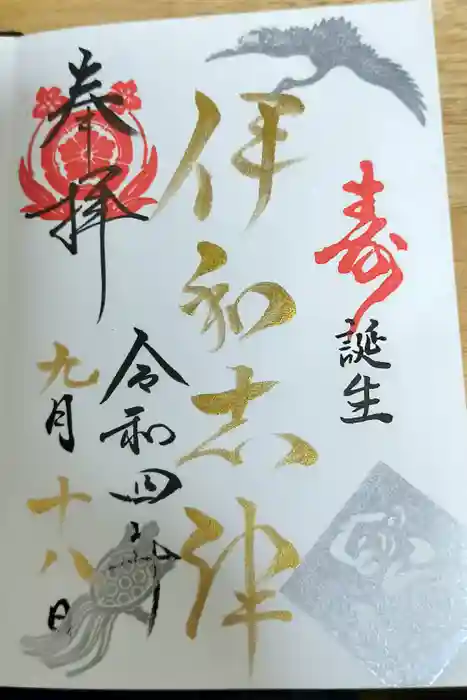 寿
誕生
伊和志津
奉拝
令和四年
九月十八日